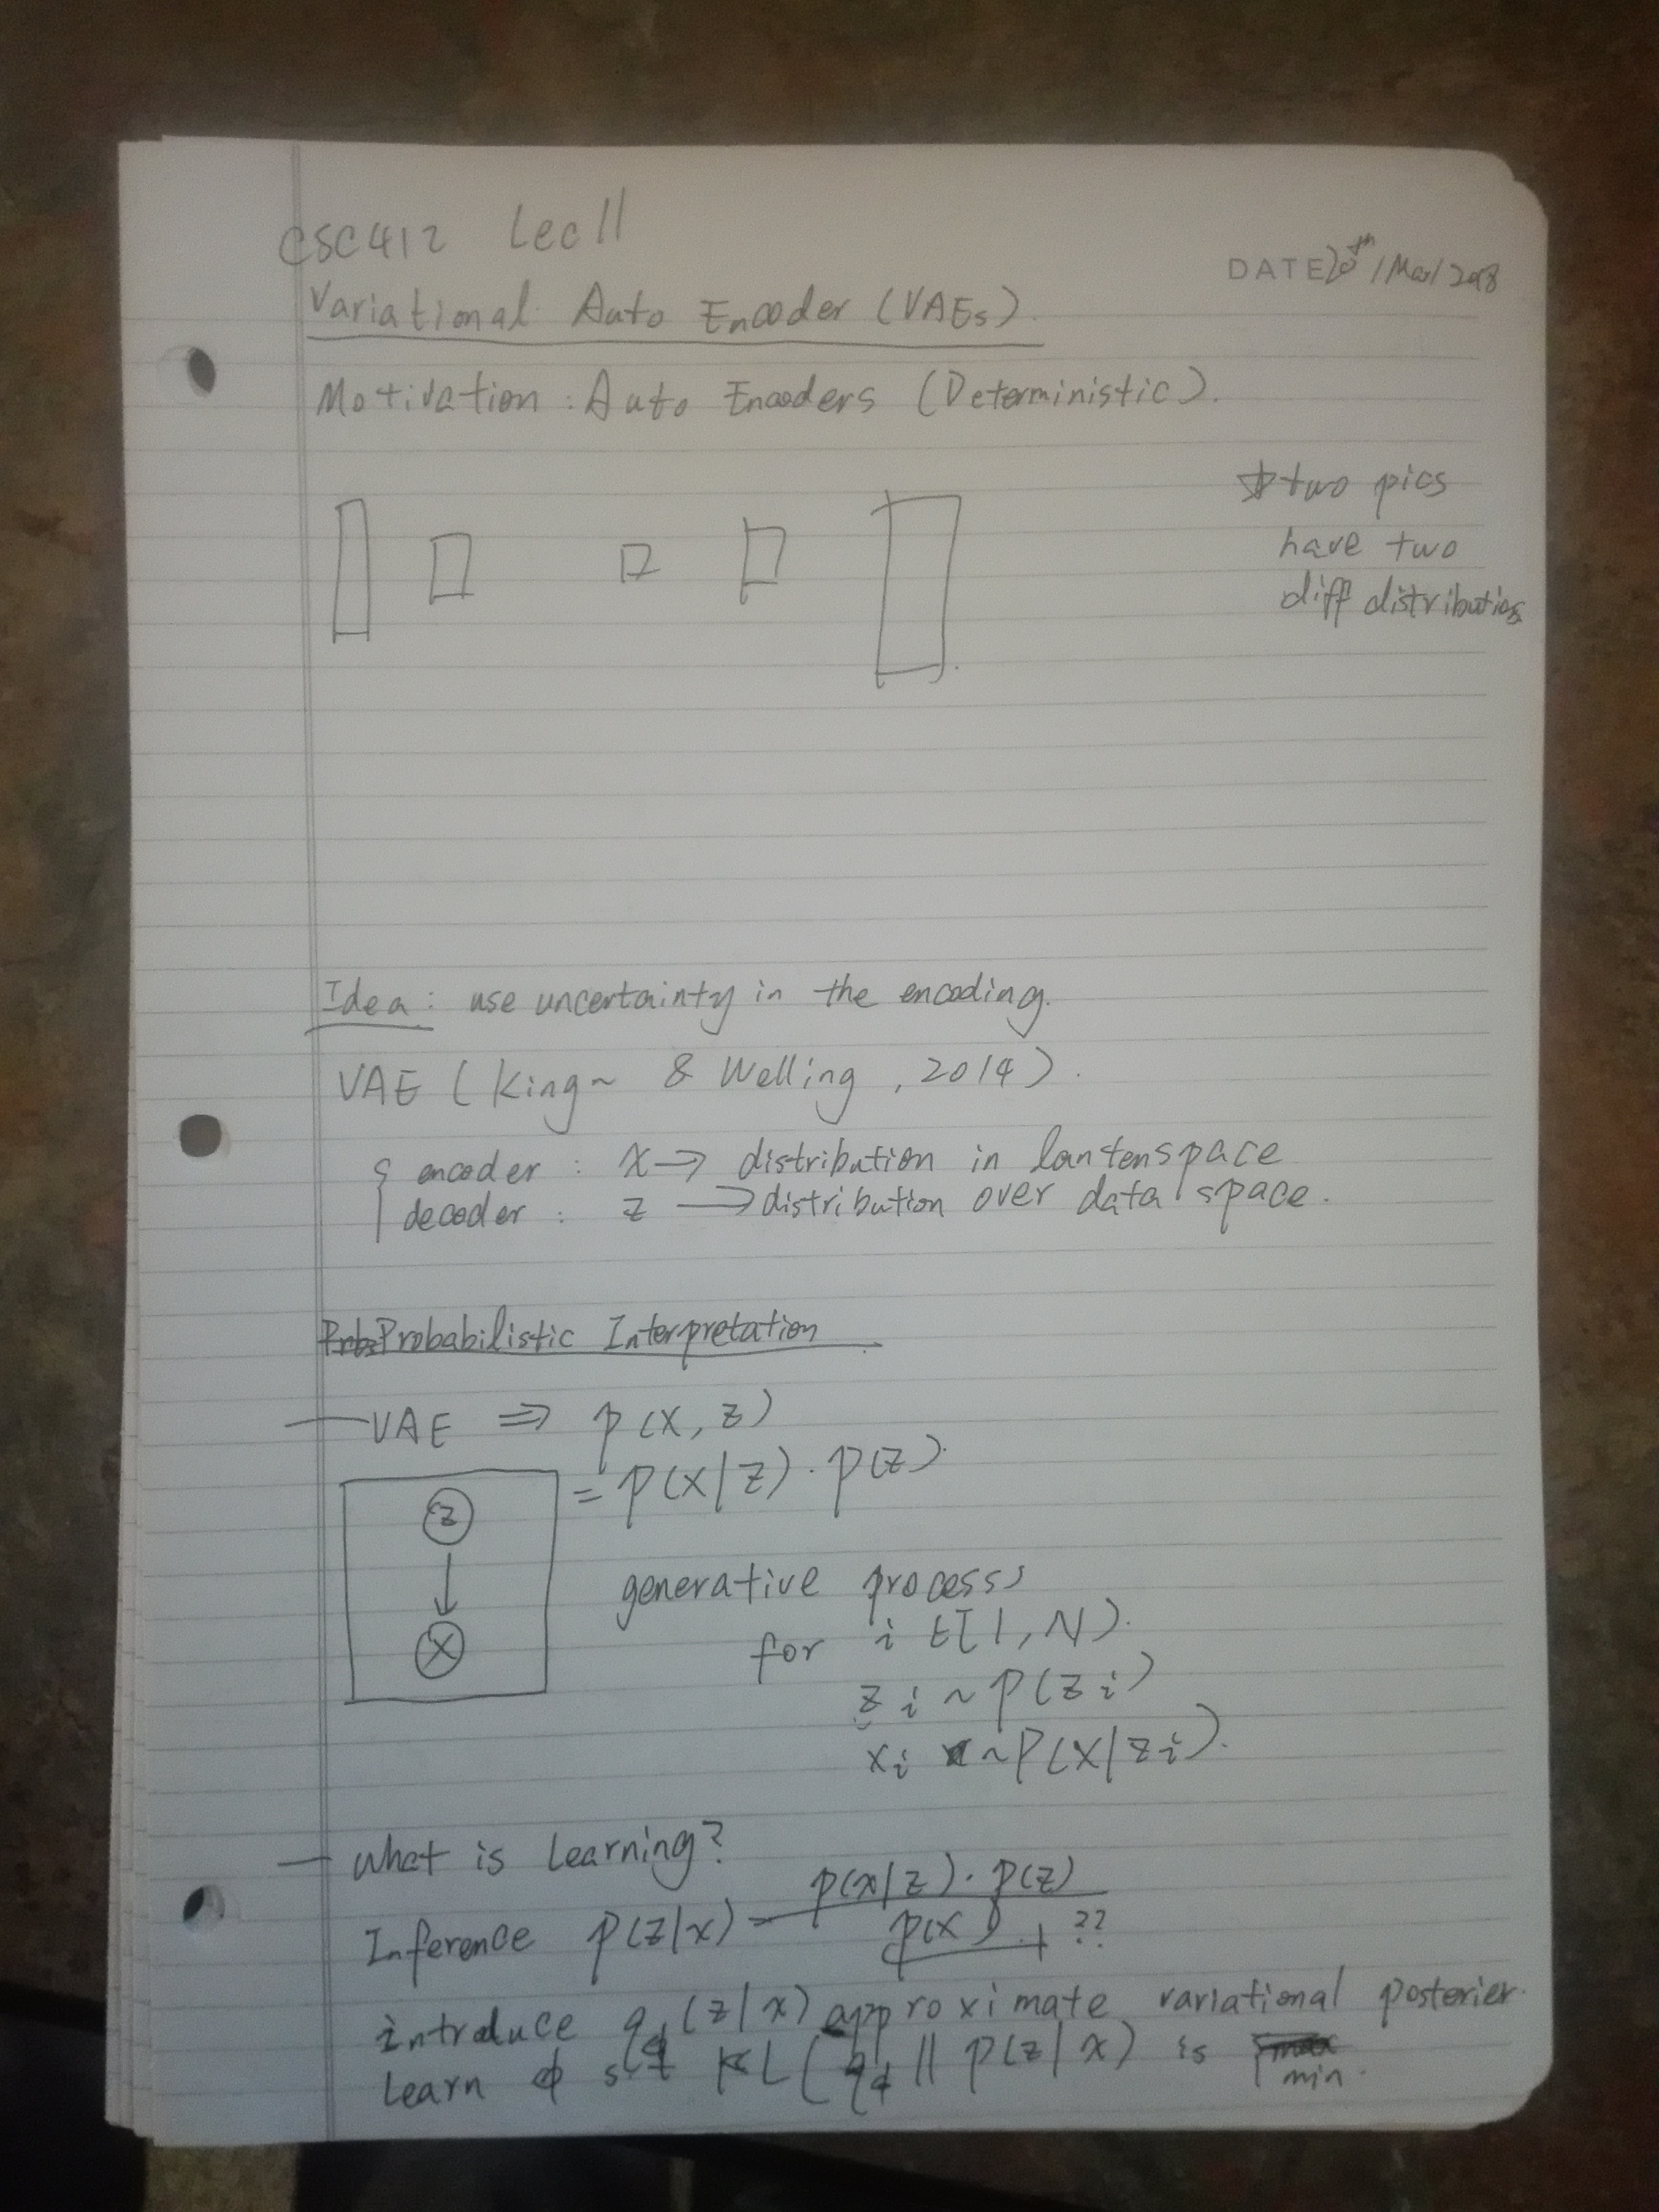 CSC412 Lec11
DATE 20th /Mar/2018
Variational Auto Encoder (VAEs).
Motivation : Auto Encoders (Deterministic).
two pics
have two
diff distributions
Idea : use uncertainty in the encoding.
VAE ( King~ & Welling , 2014 ) .
encoder : x → distribution in lantenspace
decoder : z → distribution over data space .
Probabilistic Interpretation
— VAE ⇒ p(x, z)
= p(x|z) · p(z)
z
x
generative process
for i ∈ [1, N).
zi ~ p(zi)
xi ~ p(x|zi).
— What is learning?
Inference p(z|x) = p(x|z) · p(z) / p(x) ??
introduce qϕ(z|x) approximate variational posterier.
learn ϕ st KL( qϕ || p(z|x) is min.